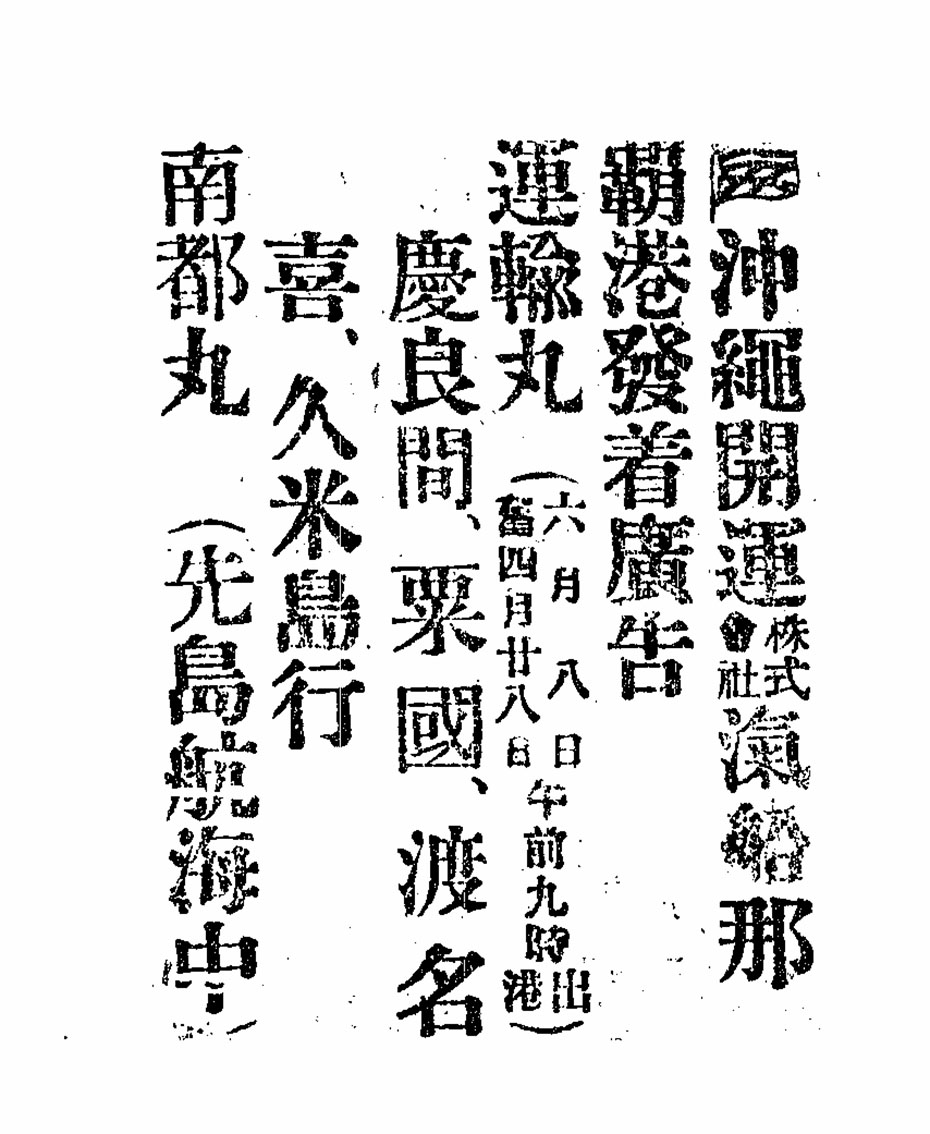 沖繩開運株式會社汽船那
覇港發着廣告
運輸丸（六月八日舊四月廿八日午前九時出港）
慶良間、粟國、渡名
喜、久米島行
南都丸（先島航海中）